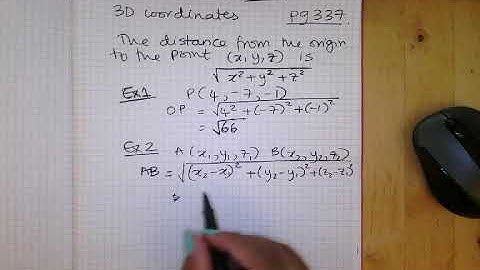 3D coordinates pg 337
The distance from the origin
to the point (x, y, z) is
√x² + y² + z²
Ex 1 P(4, -7, -1)
OP = √4² + (-7)² + (-1)²
= √66
Ex 2 A(x₁, y₁, z₁) B(x₂, y₂, z₂)
AB = √(x₂ - x)² + (y₂ - y₁)² + (z₂ - z₁)²